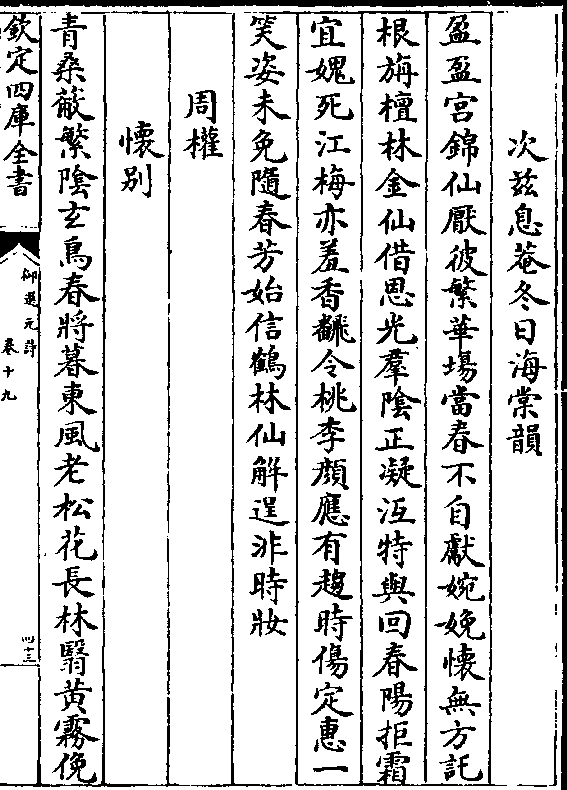 次茲息菴冬日海棠韻
盈盈宫錦仙厭彼繁華場當春不自獻婉娩懷無方託
根旃檀林金仙借恩光羣陰正凝沍特與回春陽拒霜
宜媿死江梅亦羞香飜令桃李顔應有趨時傷定惠一
笑姿未免隨春芳始信鶴林仙解逞非時妝
周權
懷别
青桑蔽繁陰玄鳥春將暮東風老松花長林翳黄霧俛
欽定四庫全書
御選元詩
卷十九
四十三